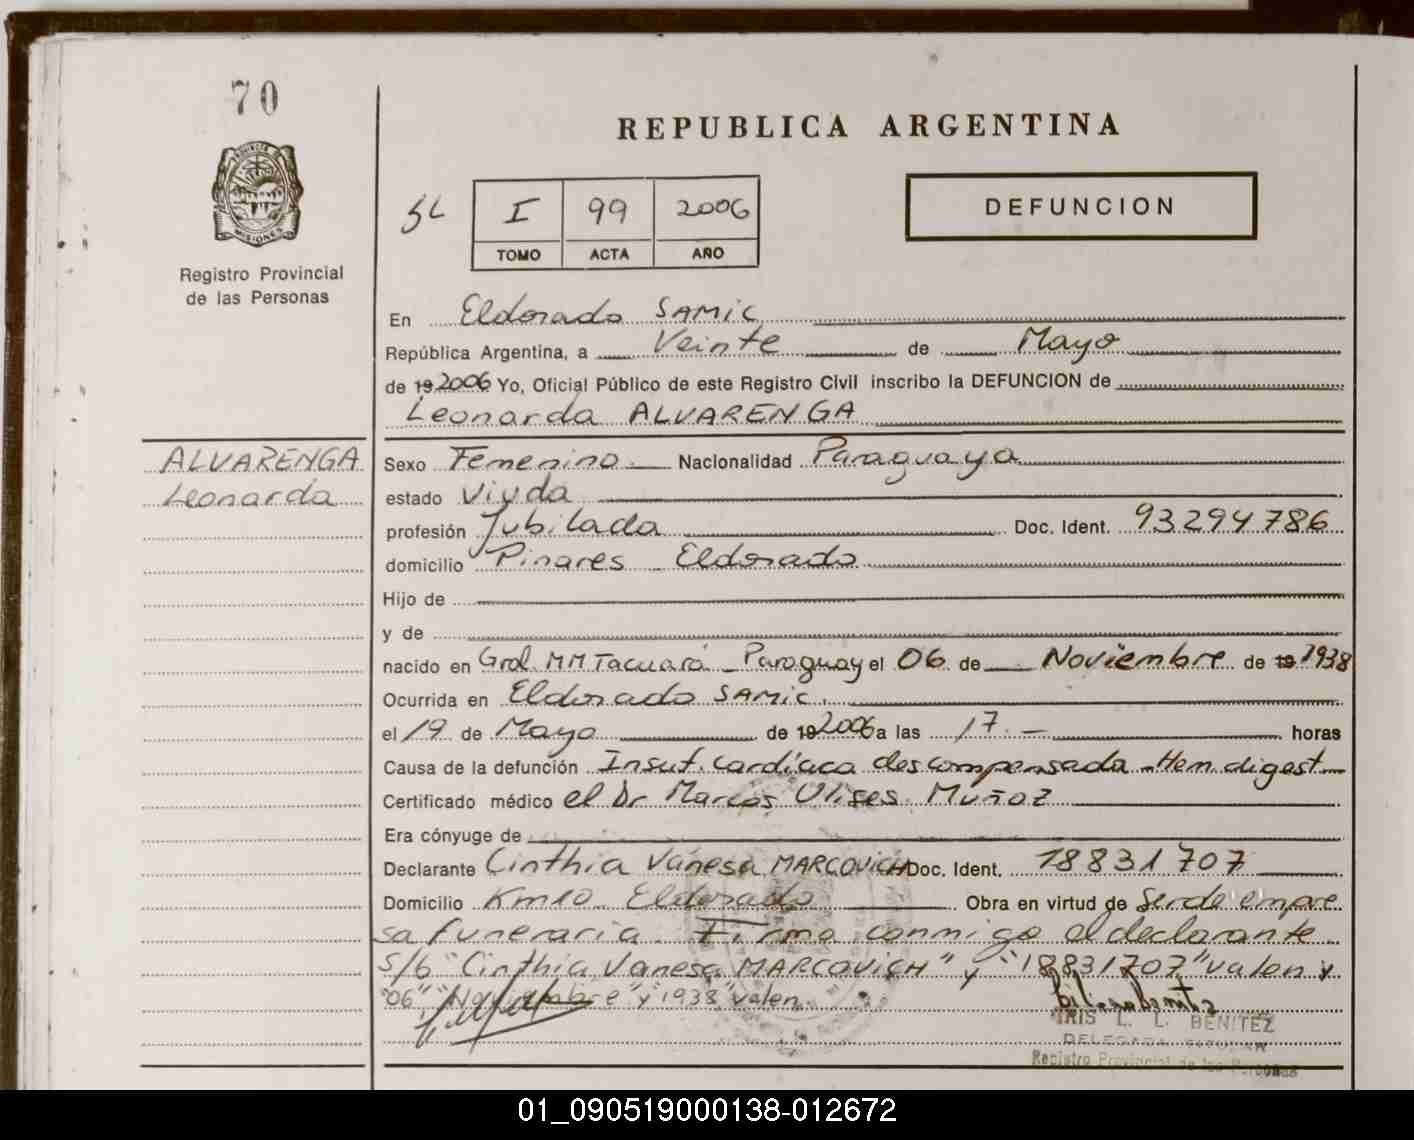 70
REPUBLICA ARGENTINA
PROVINCIA DE
MISIONES
Registro Provincial
de las Personas
SL
I 99 2006
TOMO ACTA AÑO
DEFUNCION
En Eldorado SAMIC
República Argentina, a Veinte de Mayo
de 19 2006 Yo, Oficial Público de este Registro Civil inscribo la DEFUNCION de
Leonarda ALVARENGA
ALVARENGA
Leonarda
Sexo Femenino Nacionalidad Paraguaya
estado Viuda
profesión Jubilada Doc. Ident. 93294786
domicilio Pinares - Eldorado
Hijo de
y de
nacido en Gral. MM Tacuará - Paraguay el 06 de Noviembre de 19 1938
Ocurrida en Eldorado SAMIC.
el 19 de Mayo de 19 2006 a las 17.- horas
Causa de la defunción Insuf. cardíaca descompensada - Hem. digest
Certificado médico el Dr Marcos Ulises Muñoz
Era cónyuge de
Declarante Cinthia Vanesa MARCOVICH Doc. Ident. 18831707
Domicilio Km 10 Eldorado Obra en virtud de Ser de empre
sa funeraria. Firma conmigo el declarante
S/b "Cinthia Vanesa MARCOVICH" y "18831707" valen y
"06" "Noviembre" y "1938" valen.
IRIS L. L. BENITEZ
DELEGADA TITULAR
Registro Provincial de las Personas
01_090519000138-012672